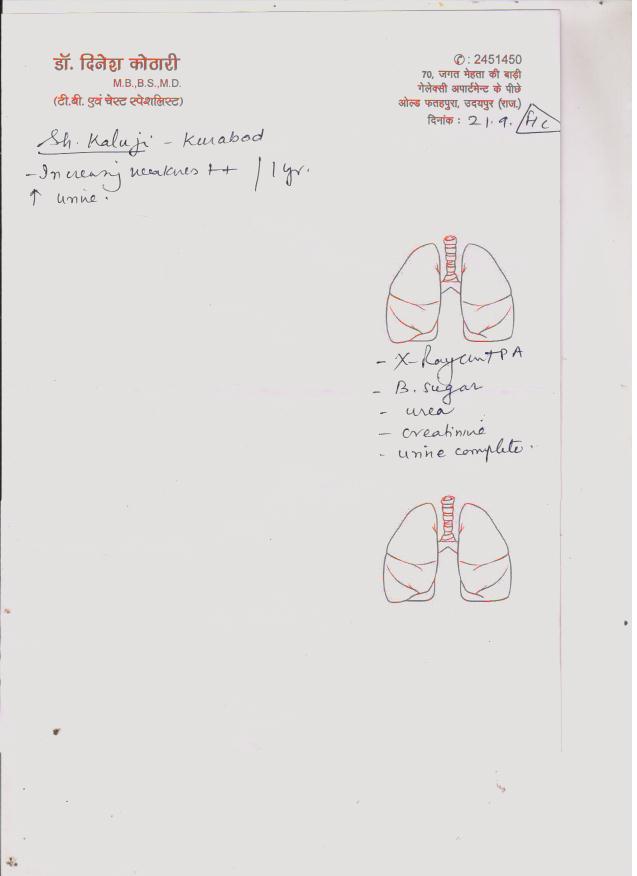 डॉ. दिनेश कोठारी
M.B.,B.S.,M.D.
(टी.बी. एवं चेस्ट स्पेशलिस्ट)
✆ : 2451450
70, जगत मेहता की बाड़ी
गेलेक्सी अपार्टमेन्ट के पीछे
ओल्ड फतहपुरा, उदयपुर (राज.)
दिनांक : 21.9. Hc
Sh. Kaluji - Kurabod
- Increasing weaknes ++ / 1 yr.
↑ urine.
- X-Ray PA
- B. sugar
- urea
- creatinine
- urine complete.